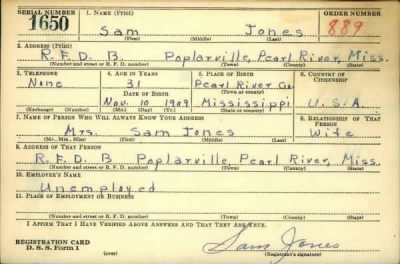 SERIAL NUMBER 1. NAME (Print) ORDER NUMBER
1650 Sam Jones 889
(First) (Middle) (Last)
2. ADDRESS (Print)
R.F.D. B. Poplarville, Pearl River, Miss.
(Number and street or R. F. D. number) (Town) (County) (State)
3. TELEPHONE 4. AGE IN YEARS 5. PLACE OF BIRTH 6. COUNTRY OF CITIZENSHIP
None 31 Pearl River Co.
DATE OF BIRTH (Town or county)
Nov. 10 1909 Mississippi U.S.A.
(Exchange) (Number) (Mo.) (Day) (Yr.) (State or country)
7. NAME OF PERSON WHO WILL ALWAYS KNOW YOUR ADDRESS 8. RELATIONSHIP OF THAT PERSON
Mrs. Sam Jones Wife
(Mr., Mrs., Miss) (First) (Middle) (Last)
9. ADDRESS OF THAT PERSON
R.F.D. B Poplarville, Pearl River, Miss.
(Number and street or R. F. D. number) (Town) (County) (State)
10. EMPLOYER'S NAME
Unemployed
11. PLACE OF EMPLOYMENT OR BUSINESS
(Number and street or R. F. D. number) (Town) (County) (State)
I AFFIRM THAT I HAVE VERIFIED ABOVE ANSWERS AND THAT THEY ARE TRUE.
REGISTRATION CARD
D. S. S. Form 1 (over) Sam Jones
(Registrant's signature)